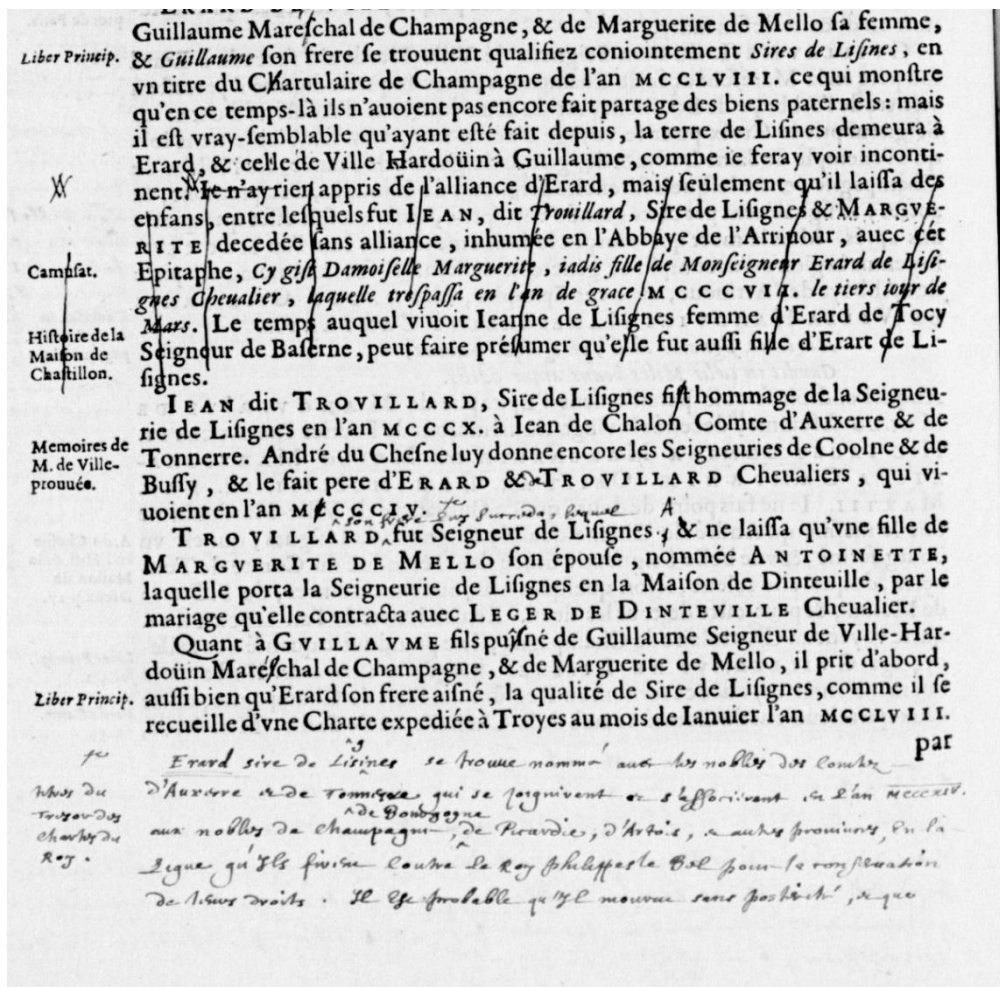 Guillaume Mareſchal de Champagne, & de Marguerite de Mello ſa femme,
Liber Princip. & Guillaume ſon frere ſe trouuent qualifiez coniointement Sires de Liſines, en
vn titre du Chartulaire de Champagne de l'an MCCLVIII. ce qui monſtre
qu'en ce temps-là ils n'auoient pas encore fait partage des biens paternels : mais
il eſt vray-ſemblable qu'ayant eſté fait depuis, la terre de Liſines demeura à
Erard, & celle de Ville Hardoüin à Guillaume, comme ie feray voir inconti-
nent. Ie n'ay rien appris de l'alliance d'Erard, mais ſeulement qu'il laiſſa des
enfans, entre leſquels fut IEAN, dit Trouillard, Sire de Liſignes & MARGVE-
RITE decedée ſans alliance, inhumée en l'Abbaye de l'Arriuour, auec cét
Campſat. Epitaphe, Cy giſt Damoiſelle Marguerite, iadis fille de Monſeigneur Erard de Liſi-
gnes Cheualier, laquelle treſpaſſa en l'an de grace MCCCVII. le tiers iour de
Mars. Le temps auquel viuoit Ieanne de Liſignes femme d'Erard de Tocy
Hiſtoire de la
Maiſon de
Chaſtillon.
Seigneur de Baſerne, peut faire préſumer qu'elle fut auſſi fille d'Erart de Li-
ſignes.
IEAN dit TROVILLARD, Sire de Liſignes fiſt hommage de la Seigneu-
rie de Liſignes en l'an MCCCX. à Iean de Chalon Comte d'Auxerre & de
Memoires de
M. de Ville-
prouuée.
Tonnerre. André du Cheſne luy donne encore les Seigneuries de Coolne & de
Buſſy, & le fait pere d'ERARD & TROVILLARD Cheualiers, qui vi-
uoient en l'an MCCCCIV.
son frere luy succeda, lequel
TROVILLARD fut Seigneur de Liſignes, & ne laiſſa qu'vne fille de
MARGVERITE DE MELLO ſon épouſe, nommée ANTOINETTE,
laquelle porta la Seigneurie de Liſignes en la Maiſon de Dinteuille, par le
mariage qu'elle contracta auec LEGER DE DINTEVILLE Cheualier.
Quant à GVILLAVME fils puiſné de Guillaume Seigneur de Ville-Har-
doüin Maréſchal de Champagne, & de Marguerite de Mello, il prit d'abord,
Liber Princip. auſſi bien qu'Erard ſon frere aiſné, la qualité de Sire de Liſignes, comme il ſe
recueille d'vne Charte expediée à Troyes au mois de Ianuier l'an MCCLVIII.
par
Erard sire de Lisines se trouue nommé auec les nobles des Comtez
titres du
Tresor des
Chartes du
Roy.
d'Auxerre et de Tonnerre qui se joignirent et s'associerent en l'an MCCCXIV.
aux nobles de Champagne, de Bourgogne de Picardie, d'Artois, & autres prouinces, en la
Ligue qu'Ils firent contre le Roy Philippes le Bel pour la conseruation
de leurs droits. Il est probable qu'Il mourut sans posterité, et que